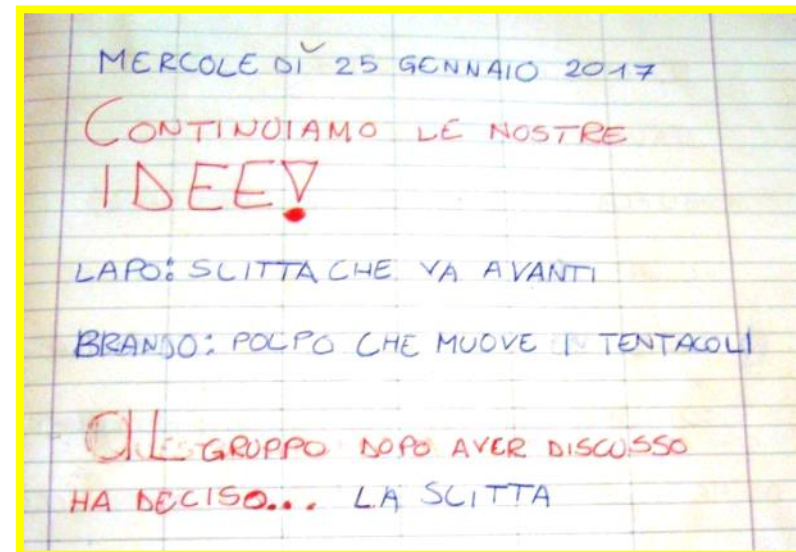 MERCOLEDÌ 25 GENNAIO 2017
CONTINUIAMO LE NOSTRE
IDEE!
LAPO: SLITTA CHE VA AVANTI
BRANDO: POLPO CHE MUOVE I TENTACOLI
IL GRUPPO DOPO AVER DISCUSSO
HA DECISO... LA SLITTA